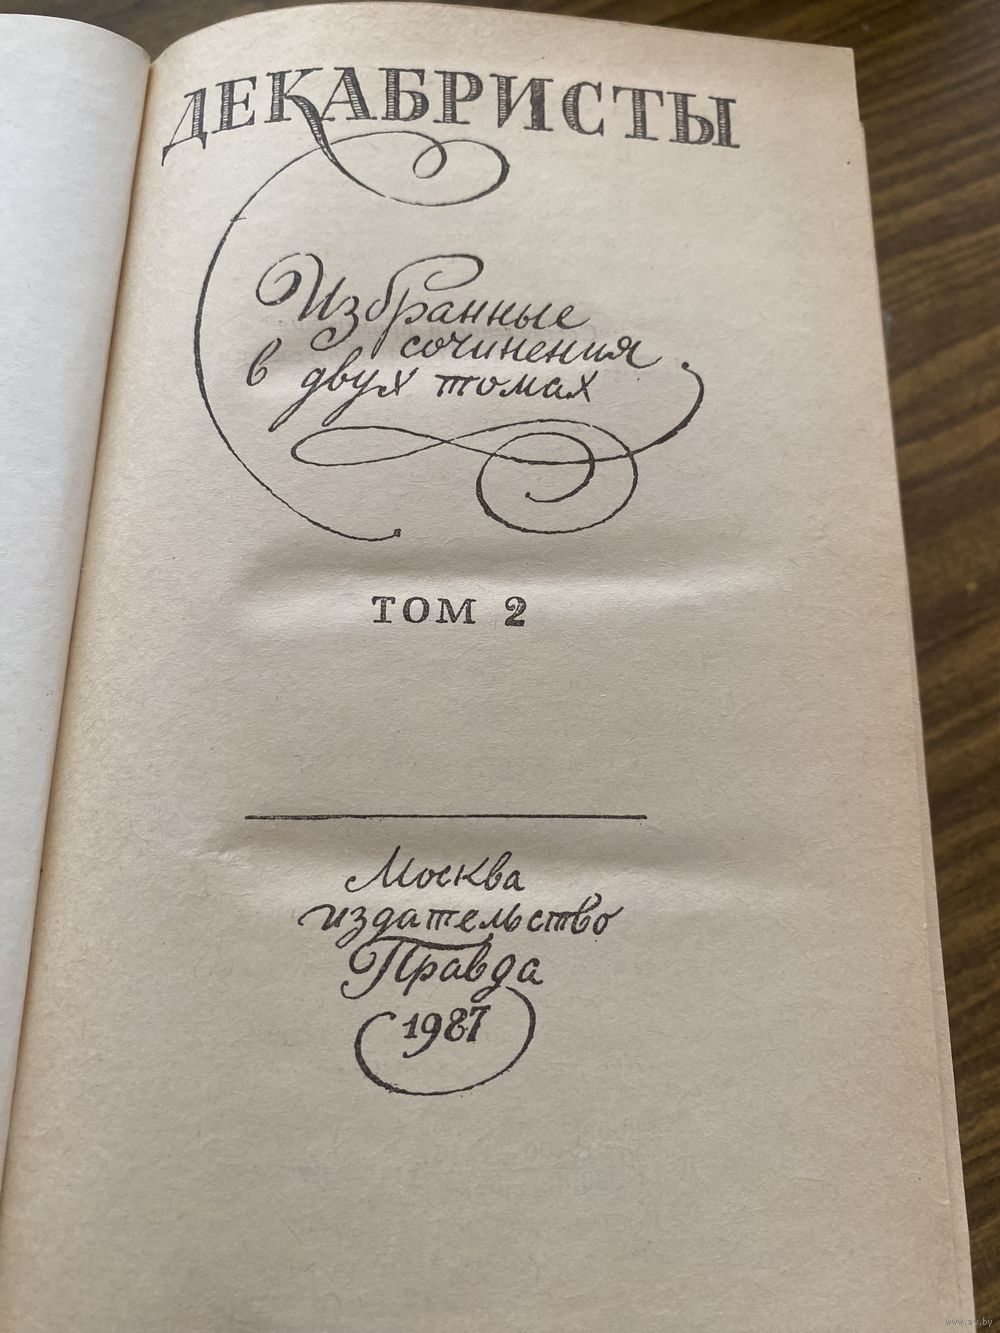 ДЕКАБРИСТЫ
Избранные
сочинения
в двух томах
ТОМ 2
Москва
издательство
Правда
1987
www.ay.by